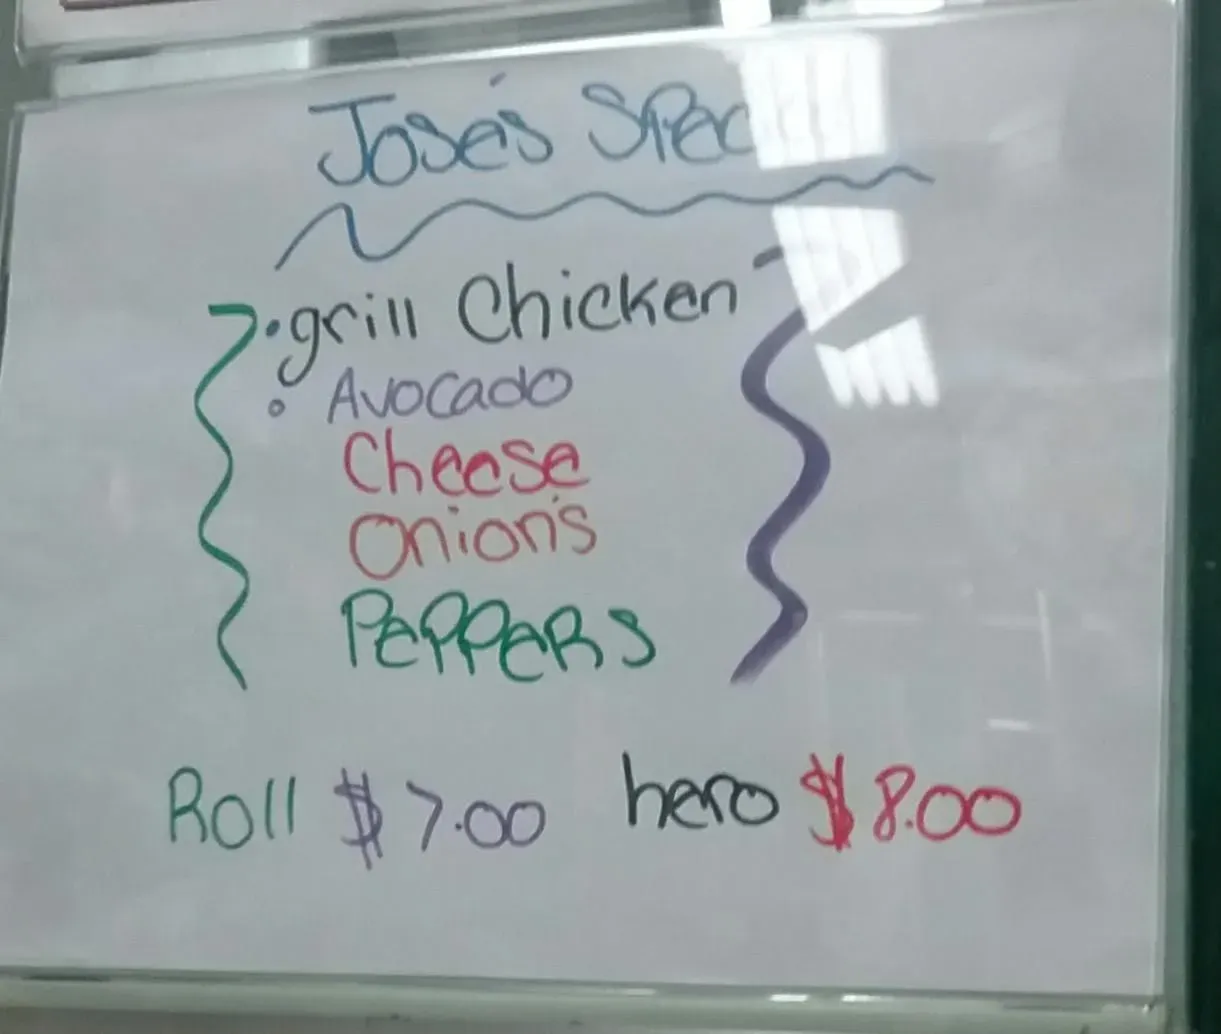 José's Spec
• grill Chicken
• Avocado
Cheese
Onions
PEPPERS
Roll $7.00 hero $8.00